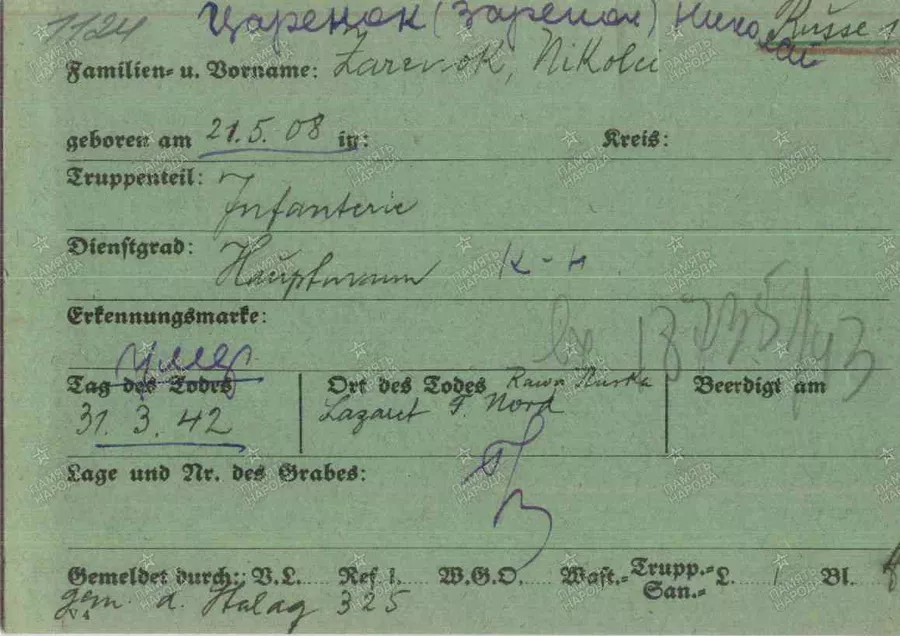 1124 Царенок (Заренок) Николай Russe 1
Familien- u. Vorname: Zarenok, Nikolei
geboren am 21.5.08 in: Kreis:
Truppenteil:
Infanterie
Dienstgrad:
Hauptmann к-н
Erkennungsmarke:
умер
Tag des Todes Ort des Todes Rawa Ruska Beerdigt am
31.3.42 Lazaret F. Nord
Lage und Nr. des Grabes:
Gemeldet durch: V.L. Ref. W.G.O. Wast.- Trupp.- San.- L. / Bl.
gem. d. Stalag 325
ПАМЯТЬ НАРОДА